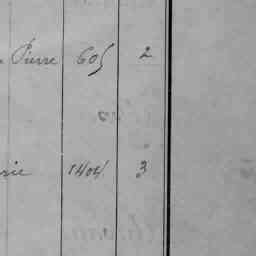 Pierre 605 2
rie 1404 3